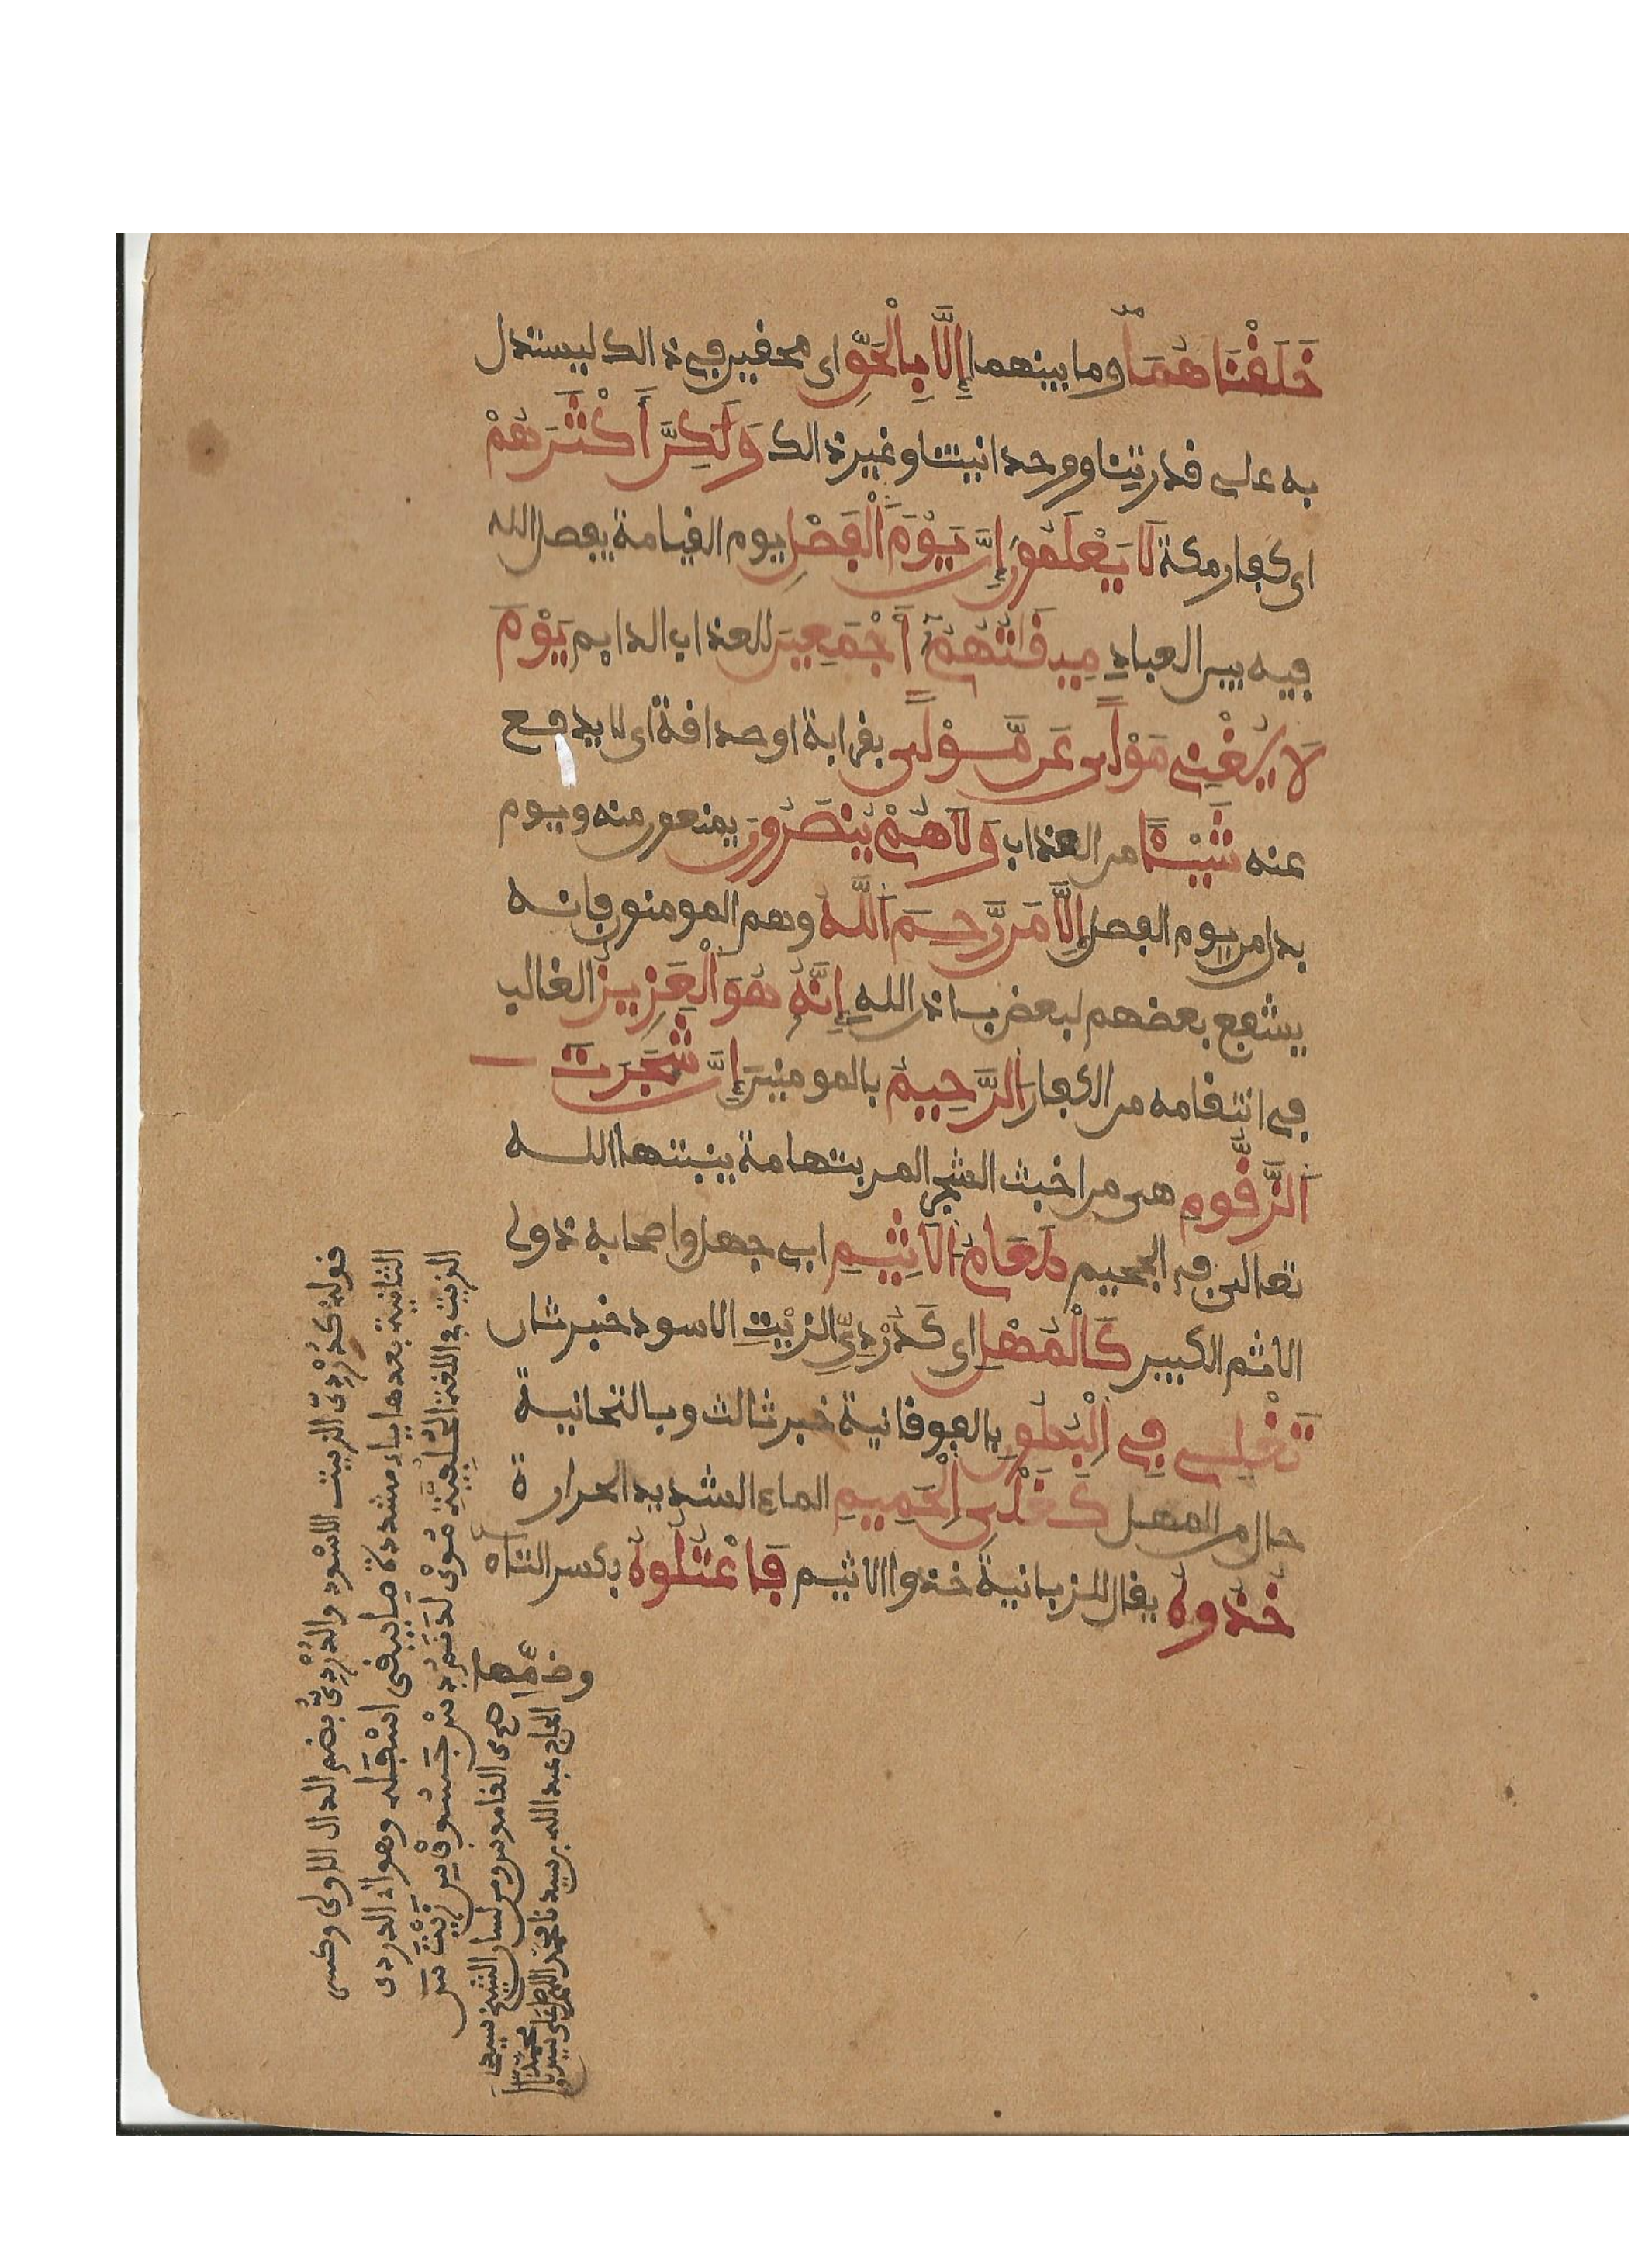 خَلَقْنَاهُمَا وما بينهما إِلَّا بِالْحَقِّ اى محقين في ذالك ليستدل
به على قدرتنا ووحدانيتنا وغير ذالك وَلَكِنَّ أَكْثَرَهُمْ
اى كفار مكة لَا يَعْلَمُونَ إِنَّ يَوْمَ الْفَصْلِ يوم القيامة يفصل الله
فيه بين العباد مِيقَاتُهُمْ أَجْمَعِينَ للعذاب الدايم يَوْمَ
لَا يُغْنِى مَوْلًى عَن مَّوْلًى بقرابة او صداقة اى لا يدفع
عنه شَيْئًا من العذاب وَلَا هُمْ يُنصَرُونَ يمنعون منه ويوم
بدل من يوم الفصل إِلَّا مَن رَّحِمَ اللَّهُ وهم المومنون فانه
يشفع بعضهم لبعض باذن الله إِنَّهُ هُوَ الْعَزِيزُ الغالب
في انتقامه من الكفار الرَّحِيمُ بالمومنين إِنَّ شَجَرَتَ
الزَّقُّومِ هى من اخبث الشجر المر بتهامة ينبتها الله
تعالى في الجحيم طَعَامُ الْأَثِيمِ ابى جهل واصحابه ذوى
الاثم الكبير كَالْمُهْلِ اى كَدُرْدِىِّ الزيْتِ الاسود خبر ثان
تَغْلِى فِى الْبُطُونِ بالفوقانية خبر ثالث وبالتحتانية
حال من المهل كَغَلْىِ الْحَمِيمِ الماء الشديد الحرارة
خُذُوهُ يقال للزبانية خذوا الاثيم فَاعْتُلُوهُ بكسر التاء
وضمها
قوله كدُرْدِىّ الزيت الاسْود والدُرْدِىُّ بضم الدال الاولى وكسر
الثانية بعدها ياء مشددة ما يبقى اسْفَلَه وهو اى الدردى
الزيت في اللغة
من القاموس ومن لسان الشيخ سيدى
الحاج عبد الله بن سيدنا محمد اللهم صل على سيدنا
محمد